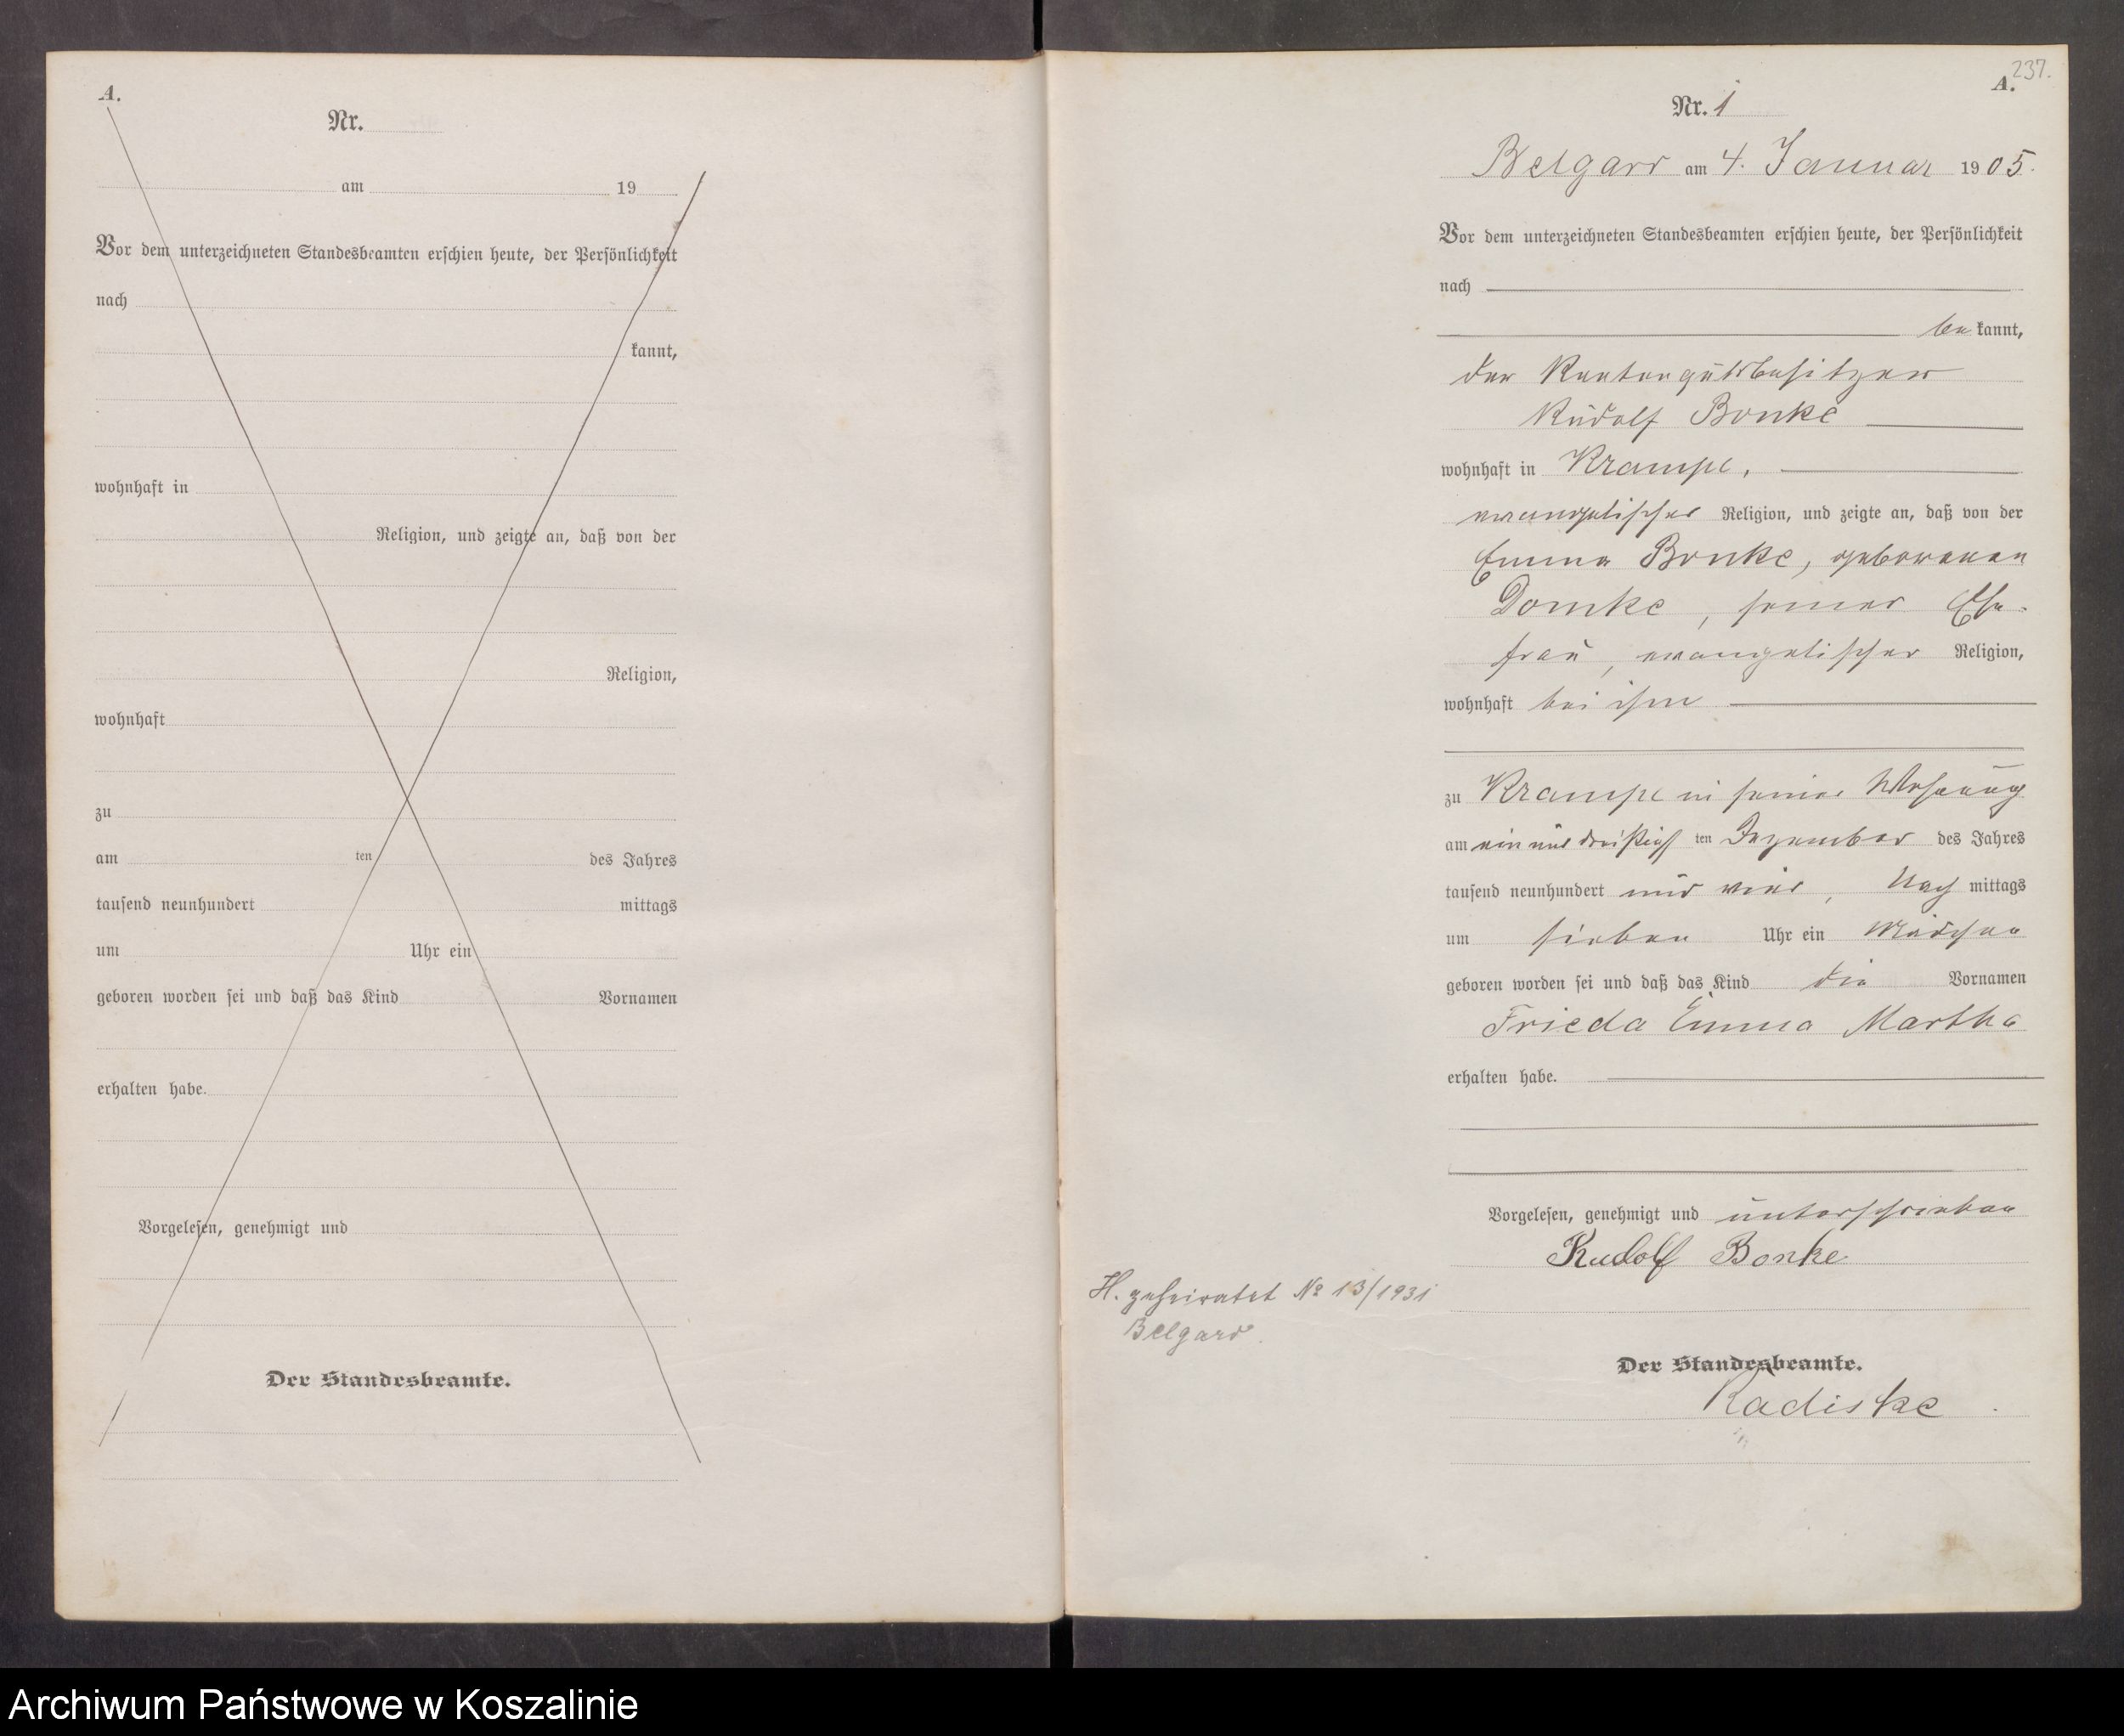 A.
Nr.
am 19
Vor dem unterzeichneten Standesbeamten erschien heute, der Persönlichkeit
nach
kannt,
wohnhaft in
Religion, und zeigte an, daß von der
Religion,
wohnhaft
zu
am ten des Jahres
tausend neunhundert mittags
um Uhr ein
geboren worden sei und daß das Kind Vornamen
erhalten habe.
Vorgelesen, genehmigt und
Der Standesbeamte.
237.
A.
Nr. 1
Belgard am 4. Januar 1905.
Vor dem unterzeichneten Standesbeamten erschien heute, der Persönlichkeit
nach
be kannt,
der Rentengutsbesitzer
Rudolf Bonke
wohnhaft in Krampe,
evangelischer Religion, und zeigte an, daß von der
Emma Bonke, geborenen
Domke, seiner Ehe-
frau, evangelischer Religion,
wohnhaft bei ihm
zu Krampe in seiner Wohnung
am ein und dreißigsten Dezember des Jahres
tausend neunhundert und vier, Nach mittags
um sieben Uhr ein Mädchen
geboren worden sei und daß das Kind die Vornamen
Frieda Emma Martha
erhalten habe.
Vorgelesen, genehmigt und unterschrieben
Rudolf Bonke
H. geheiratet No 13/1931
Belgard.
Der Standesbeamte.
Radiske
Archiwum Państwowe w Koszalinie